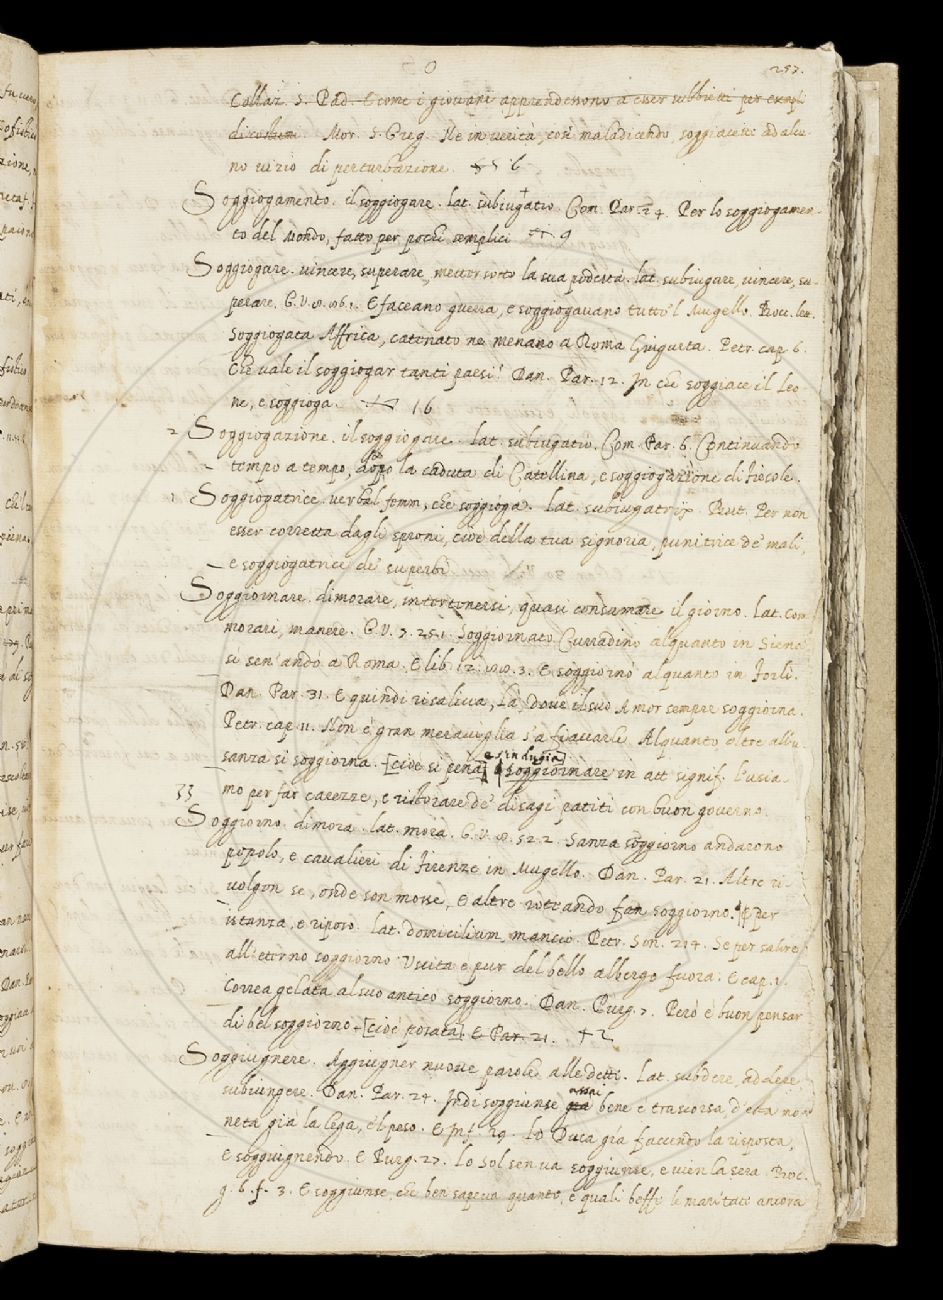 O 257.
Collaz. S. Pad. E come i giovani apprendessono a esser subbietti per exempli
di costumi. Mor. S. Greg. Ne in verità, così maladicendo, soggiacette ad alcu-
no vizio di perturbazione. 6
Soggiogamento. il soggiogare. lat. subiugatio. Com. Par. 24. Per lo soggiogamen-
to del Mondo, fatto per pochi semplici 9
Soggiogare. vincere, superare, metter sotto la sua podestà. lat. subiugare, vincere, su-
perare. G.V. E faceano guerra, e soggiogavano tutto'l Mugello. Bocc. lett.
Soggiogata Affrica, catenato ne menano a Roma Giugurta. Petr. cap. 6.
Che vale il soggiogar tanti paesi? Dan. Par. 12. In che soggiace il Leo
ne, e soggioga. 16
2 Soggiogazione. il soggiogare. lat. subiugatio. Com. Par. 6. Continuando
tempo a tempo, dopo la caduta di Catellina, e soggiogazione di Fiesole.
1 Soggiogatrice. verbal femm. che soggioga. Lat. subiugatrix. But. Per non
esser corretta dagli sproni, cioè della tua signoria, punitrice de' mali,
e soggiogatrice de' superbi.
Soggiornare. dimorare, intertenersi, quasi consumare il giorno. Lat. com-
morari, manere. G.V. 7. 25.1. Soggiornato Curradino alquanto in Siena
si sen'andò a Roma. E lib. 12. 3. E soggiornò alquanto in Forlì.
Dan. Par. 31. E quindi risaliva, Là, dove il suo Amor sempre soggiorna.
Petr. cap. 11. Non è gran meraviglia s'a fiaccarle Alquanto oltre all'u-
sanza si soggiorna. [cioè si pena] e s'indugia] soggiornare in att signif. l'usia-
mo per far carezze, e ristorare de' disagi patiti con buon governo.
33
Soggiorno. dimora. lat. mora. G.V. 8. 52.2. Sanza soggiorno andarono
popolo, e cavalieri di Firenze in Mugello. Dan. Par. 21. Altre ri-
volgon se, onde son mosse, E altre roteando fan soggiorno. ¶ per
istanza, e riposo. Lat. domicilium, mansio. Petr. Son. 214. Se per salire
all'etterno soggiorno Uscita è pur del bello albergo fuora. E cap. 1.
Correa gelata al suo antico soggiorno. Dan. Purg. 7. Però è buon pensar
di bel soggiorno [cioè posata]. E Par. 21. + 2
Soggiugnere. Aggiugner nuove parole alle dette. Lat. subdere, addere
subiungere. Dan. Par. 24. Indi soggiunse assai già bene è trascorsa, D'esta mo-
neta già la lega, e'l peso. E Inf. 29. Lo Duca già faccendo la risposta,
E soggiugnendo. E Purg. 27. Lo sol sen va soggiunse, e vien la sera. Bocc.
g. 6. f. 3. E soggiunse, che ben sapeva quante, e quali beffe le maritate ancora